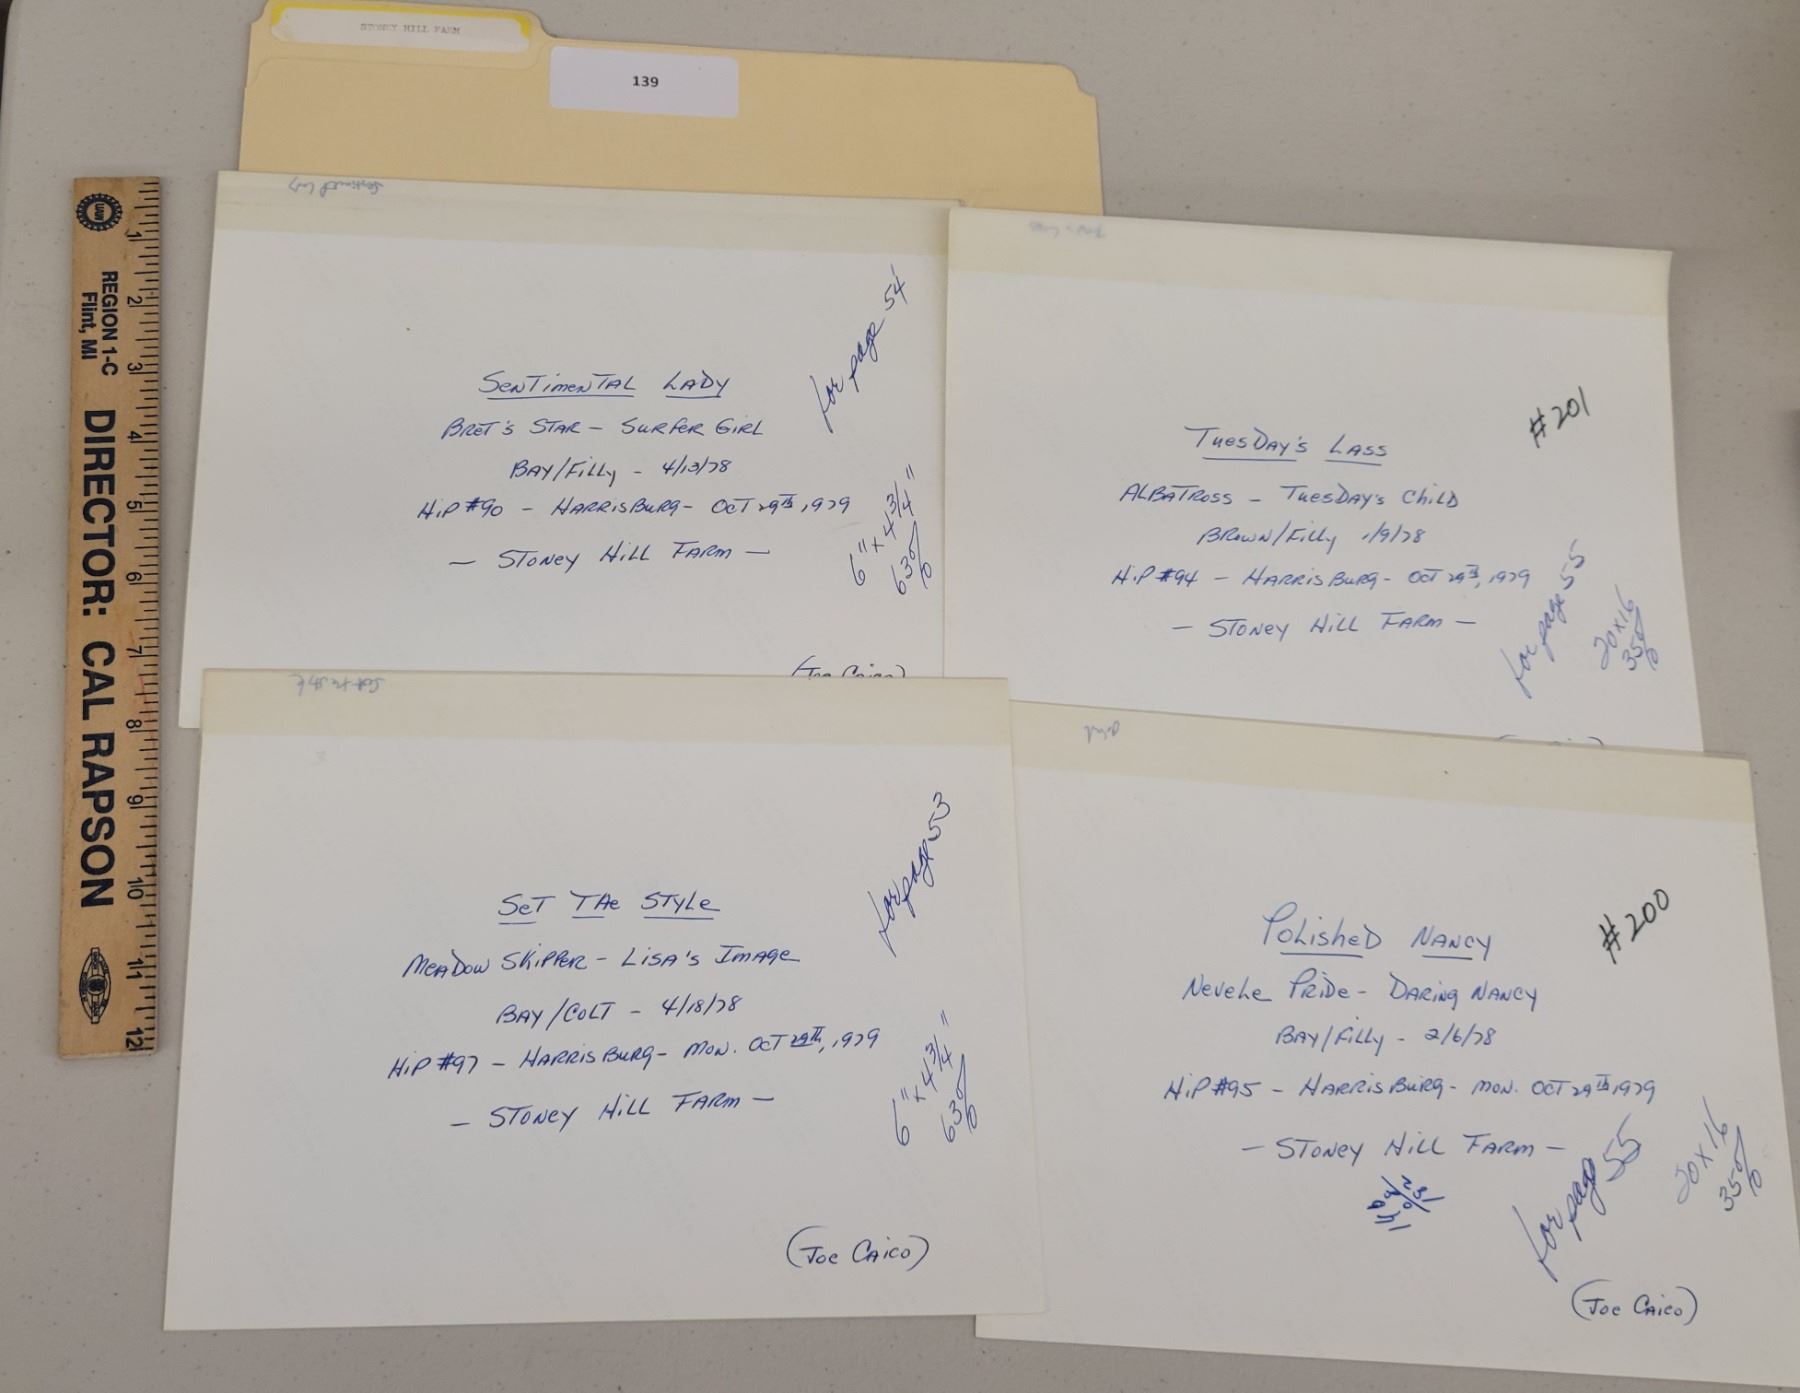 STONEY HILL FARM
139
REGION 1-C
Flint, MI
DIRECTOR: CAL RAPSON
1 2 3 4 5 6 7 8 9 10 11 12
Sentimental Lady
SENTIMENTAL LADY
BRET'S STAR - SURFER GIRL
BAY/FILLY - 4/13/78
HIP #90 - HARRISBURG - OCT 29th, 1979
- STONEY HILL FARM -
(Joe Caico)
for page 54
6" x 4 3/4"
63%
TUESDAY'S LASS
ALBATROSS - TUESDAY'S CHILD
BROWN/FILLY 1/9/78
HIP #94 - HARRISBURG - OCT 29th, 1979
- STONEY HILL FARM -
#201
for page 55
20x16
35%
Set the Style
SET THE STYLE
MEADOW SKIPPER - LISA'S IMAGE
BAY/COLT - 4/18/78
HIP #97 - HARRISBURG - MON. OCT 29th, 1979
- STONEY HILL FARM -
(Joe Caico)
for page 53
6" x 4 3/4"
63%
POLISHED NANCY
NEVELE PRIDE - DARING NANCY
BAY/FILLY - 2/6/78
HIP #95 - HARRISBURG - MON. OCT 29th 1979
- STONEY HILL FARM -
(Joe Caico)
#200
for page 55
20x16
35%